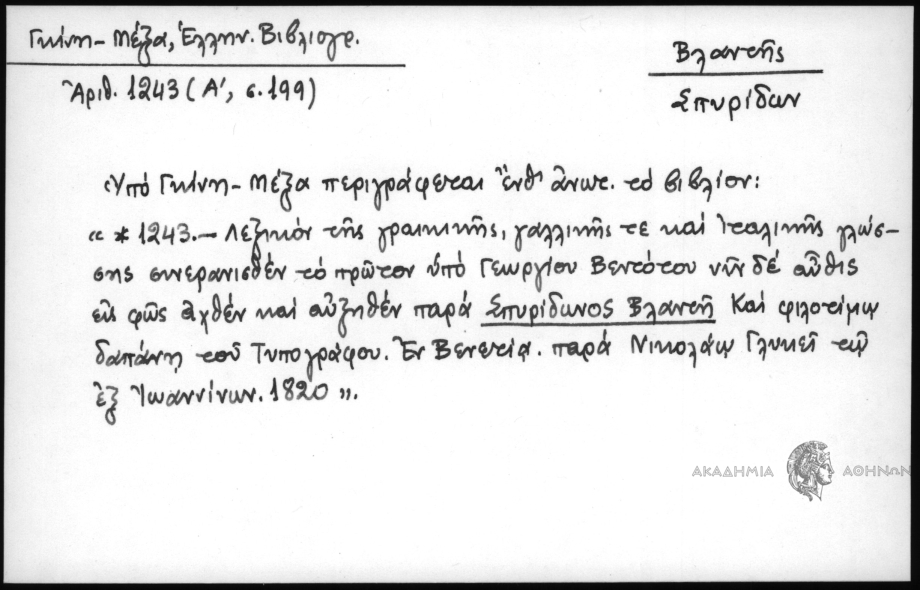 Γκίνη - Μέξα, Ἑλλην. Βιβλιογρ.
Ἀριθ. 1243 (Α', σ. 199)
Βλαντῆς
Σπυρίδων
Ὑπό Γκίνη - Μέξα περιγράφεται ἔνθ' ἀνωτ. τό βιβλίον:
« * 1243.— Λεξικόν τῆς γραικικῆς, γαλλικῆς τε καί Ἰταλικῆς γλώσ-
σης συνερανισθέν τό πρῶτον ὑπό Γεωργίου Βεντότου νῦν δέ αὖθις
εἰς φῶς ἀχθέν καί αὐξηθέν παρά Σπυρίδωνος Βλαντῆ Καί φιλοτίμῳ
δαπάνῃ τοῦ Τυπογράφου. Ἐν Βενετίᾳ. παρά Νικολάῳ Γλυκεῖ τῷ
ἐξ Ἰωαννίνων. 1820 ».
ΑΚΑΔΗΜΙΑ ΑΘΗΝΩΝ